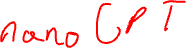 nano GPT